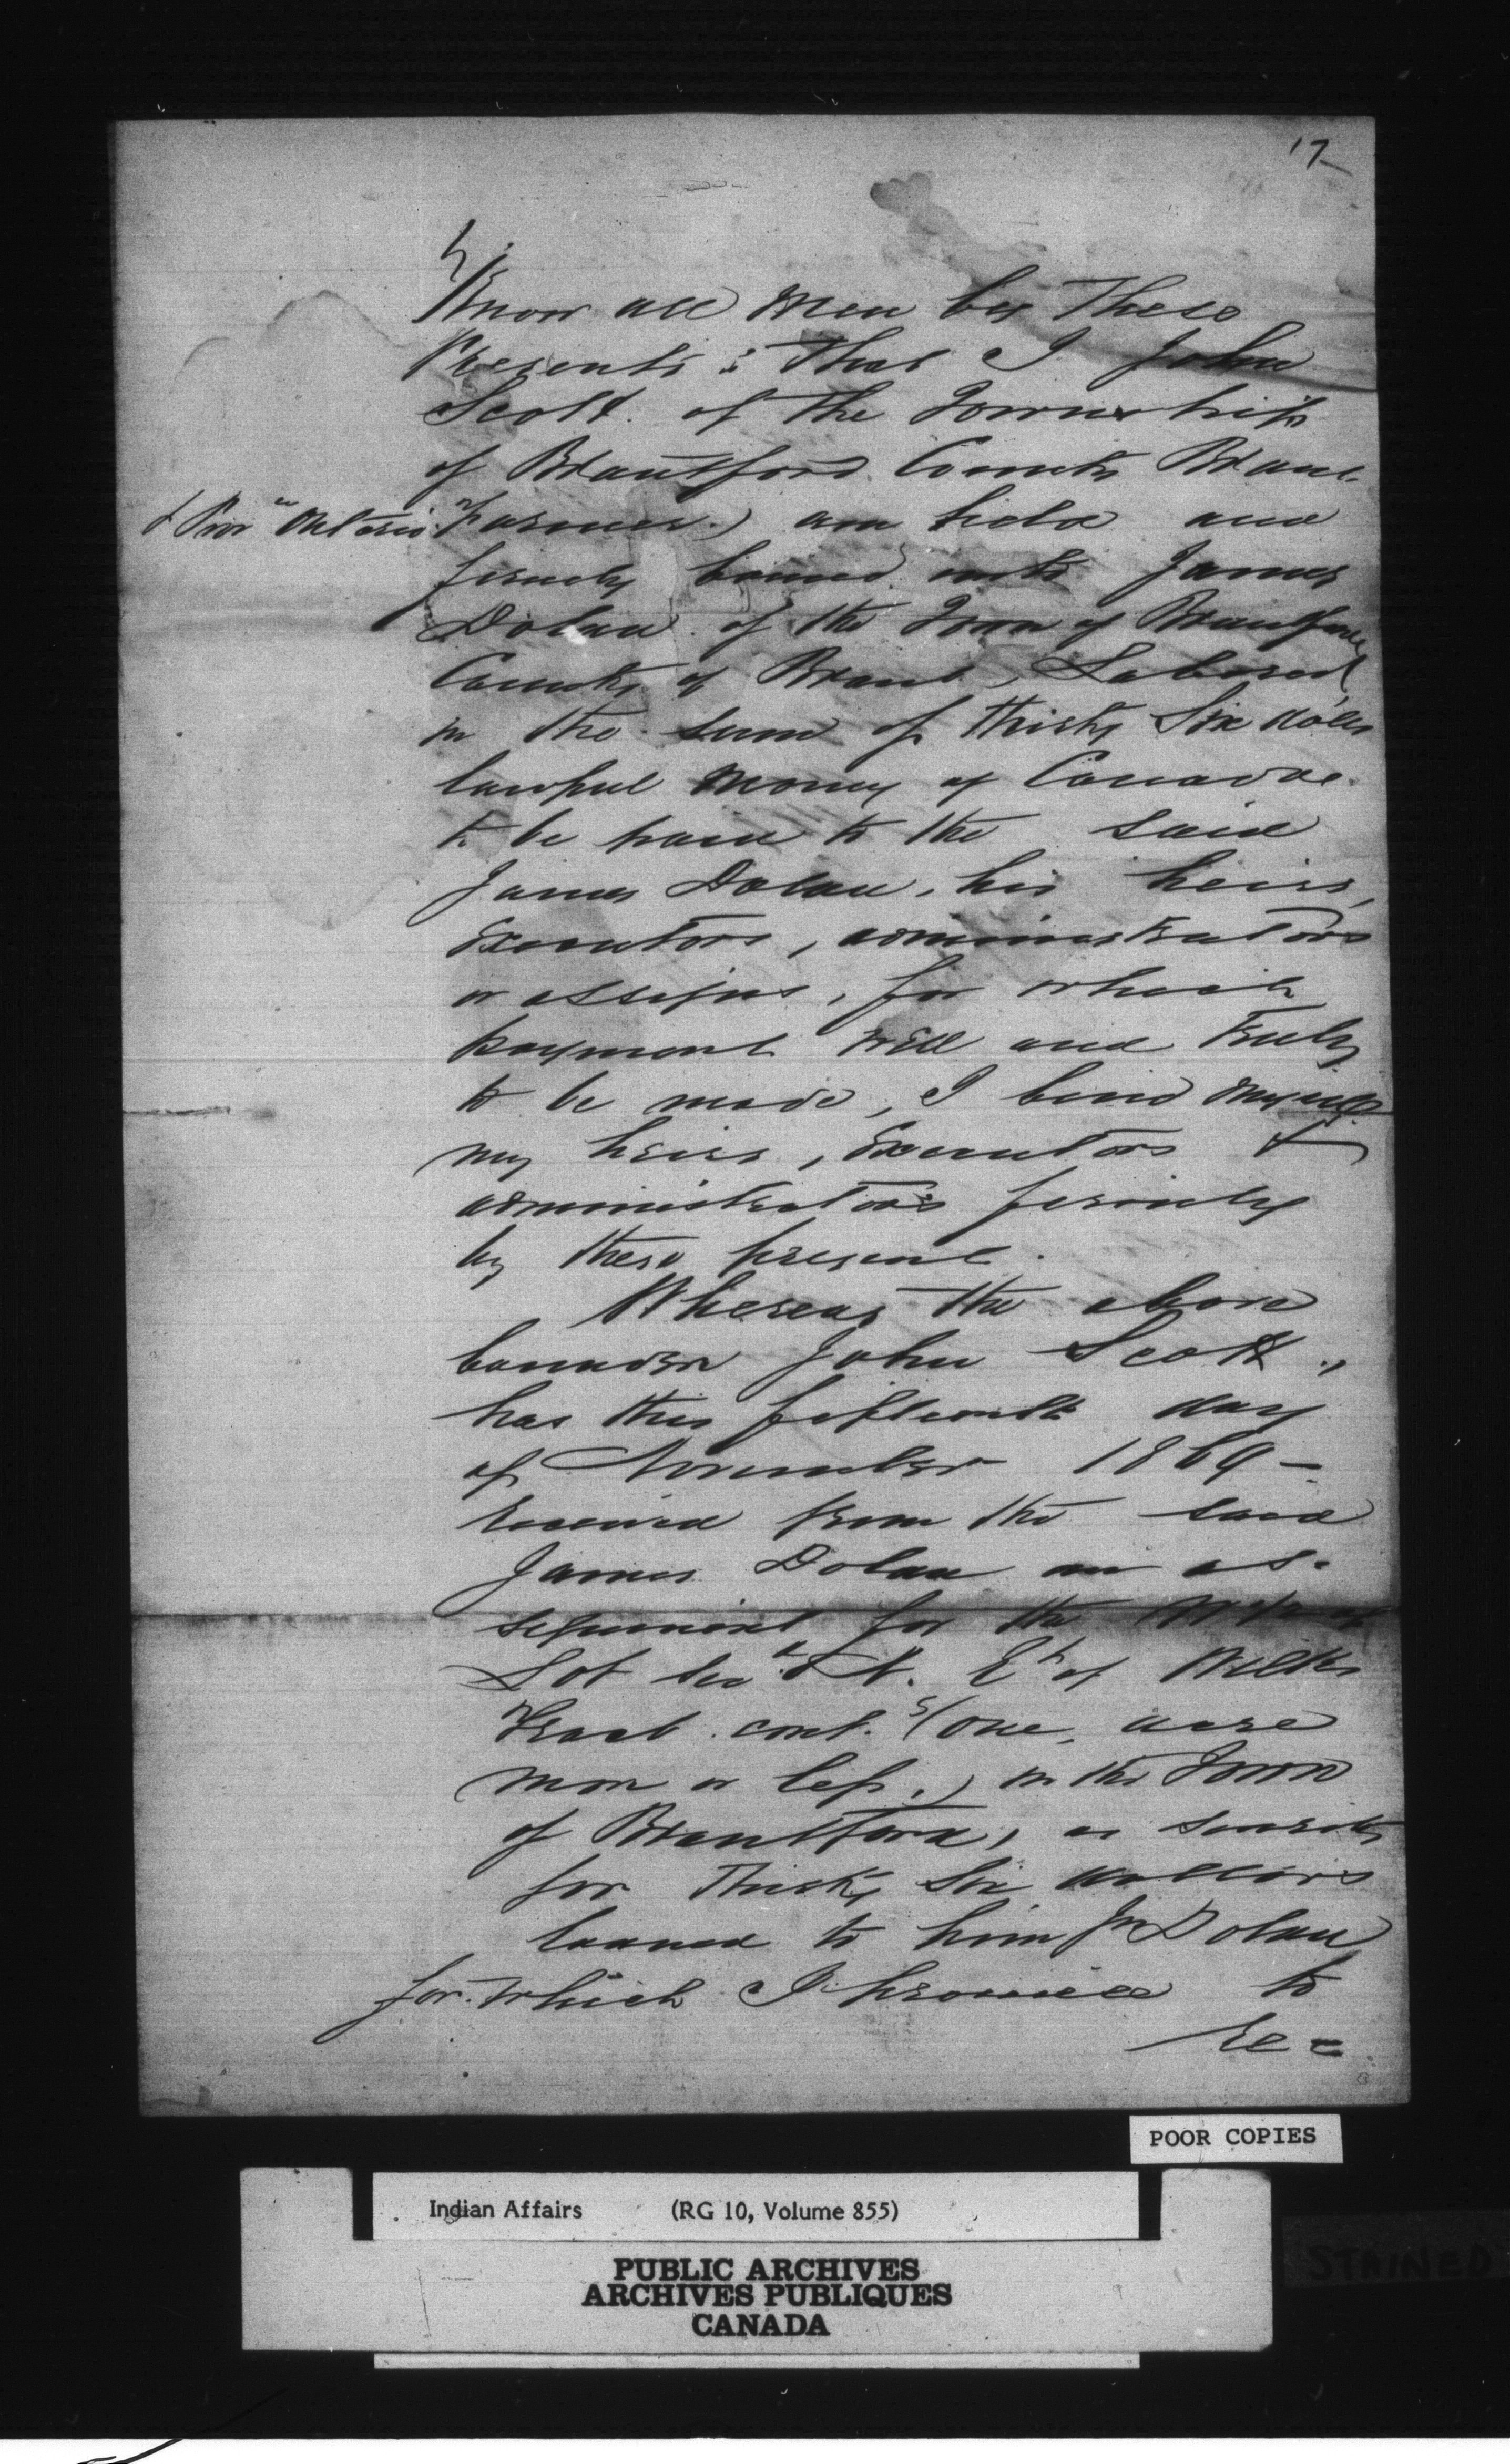 17
Know all Men by These
Presents: That I John
Scott. of the Township
of Brantford. County Brant
& Prov Ontario Farmer.) am held and
firmly bound unto James
Dolan. of the Town of Brantford
County of Brant, Laborer,
in the sum of thirty Six dolls
lawful money of Canada.
to be paid to the said
James Dolan, his heirs,
Executors, administrators
or assigns, for which
payment well and truly
to be made, I bind myself
my heirs, Executors &
administrators firmly
by these present.
Whereas the above
bounden John Scott.,
has this fifteenth day
of November 1869-
received from the said
James Dolan an as-
signment for the
Lot of Wilkes
Tract. cont. (one, acre
more or less,) in the Town
of Brantford, as security
for Thirty Six dollars
loaned to him Js Dolan
for which I promise to
re=
POOR COPIES
Indian Affairs (RG 10, Volume 855)
PUBLIC ARCHIVES
ARCHIVES PUBLIQUES
CANADA
STAINED